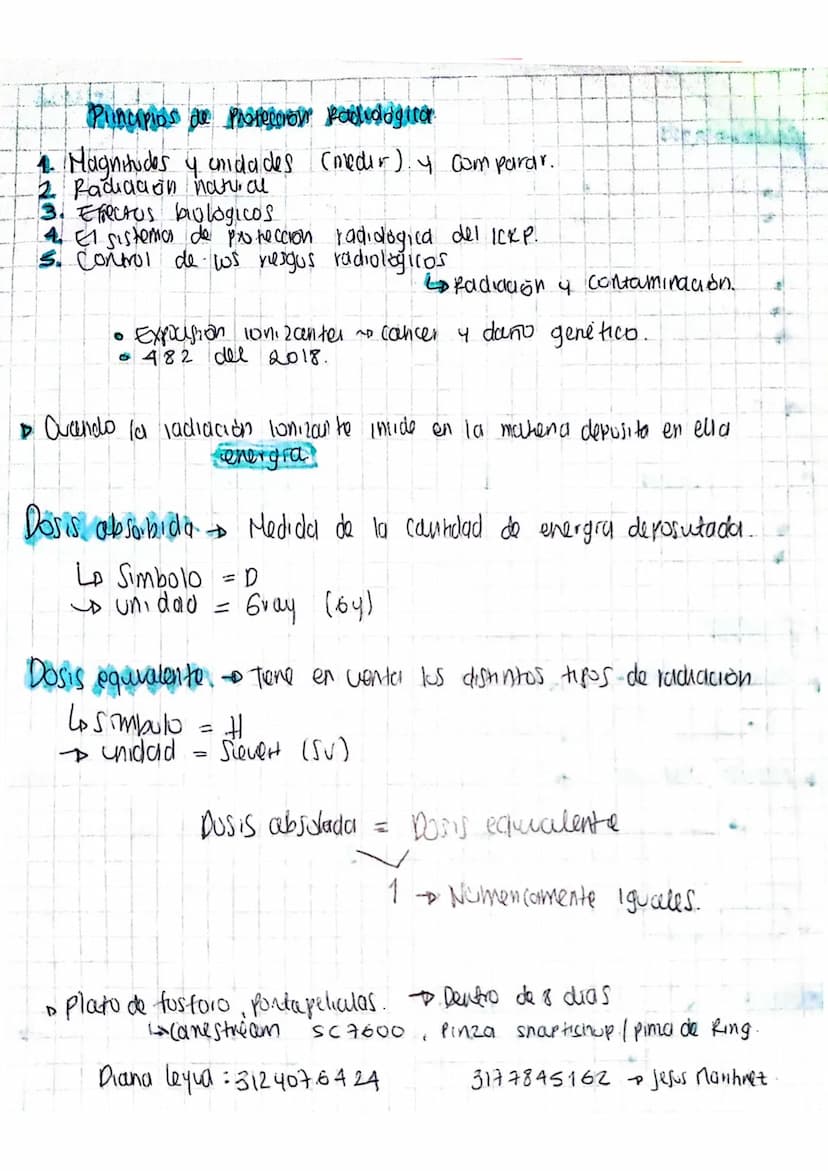 Principios de Protección Radiológica
1. Magnitudes y unidades (medir) y comparar.
2. Radiación natural
3. Efectos biológicos
4. El sistema de protección radiológica del ICRP.
5. Control de los riesgos radiológicos
↳ Radiación y contaminación.
• Exposición ionizantes → cancer y daño genético.
• 482 del 2018.
▷ Cuando la radiación ionizante incide en la materia deposita en ella
energía
Dosis absorbida → Medida de la cantidad de energía depositada.
↳ Simbolo = D
→ unidad = Gray (Gy)
Dosis equivalente. → Tiene en cuenta los distintos tipos de radiación
↳ símbolo = H
→ unidad = Sievert (Sv)
Dosis absolada = Dosis equivalente
1 → Númericamente iguales.
▷ Plato de fosforo, Portapeliculas. → Dentro de 8 dias
↳ Carestream SC7600, Pinza / pinza de Ring.
Diana Leyva: 3124076424 3177845162 → Jesus